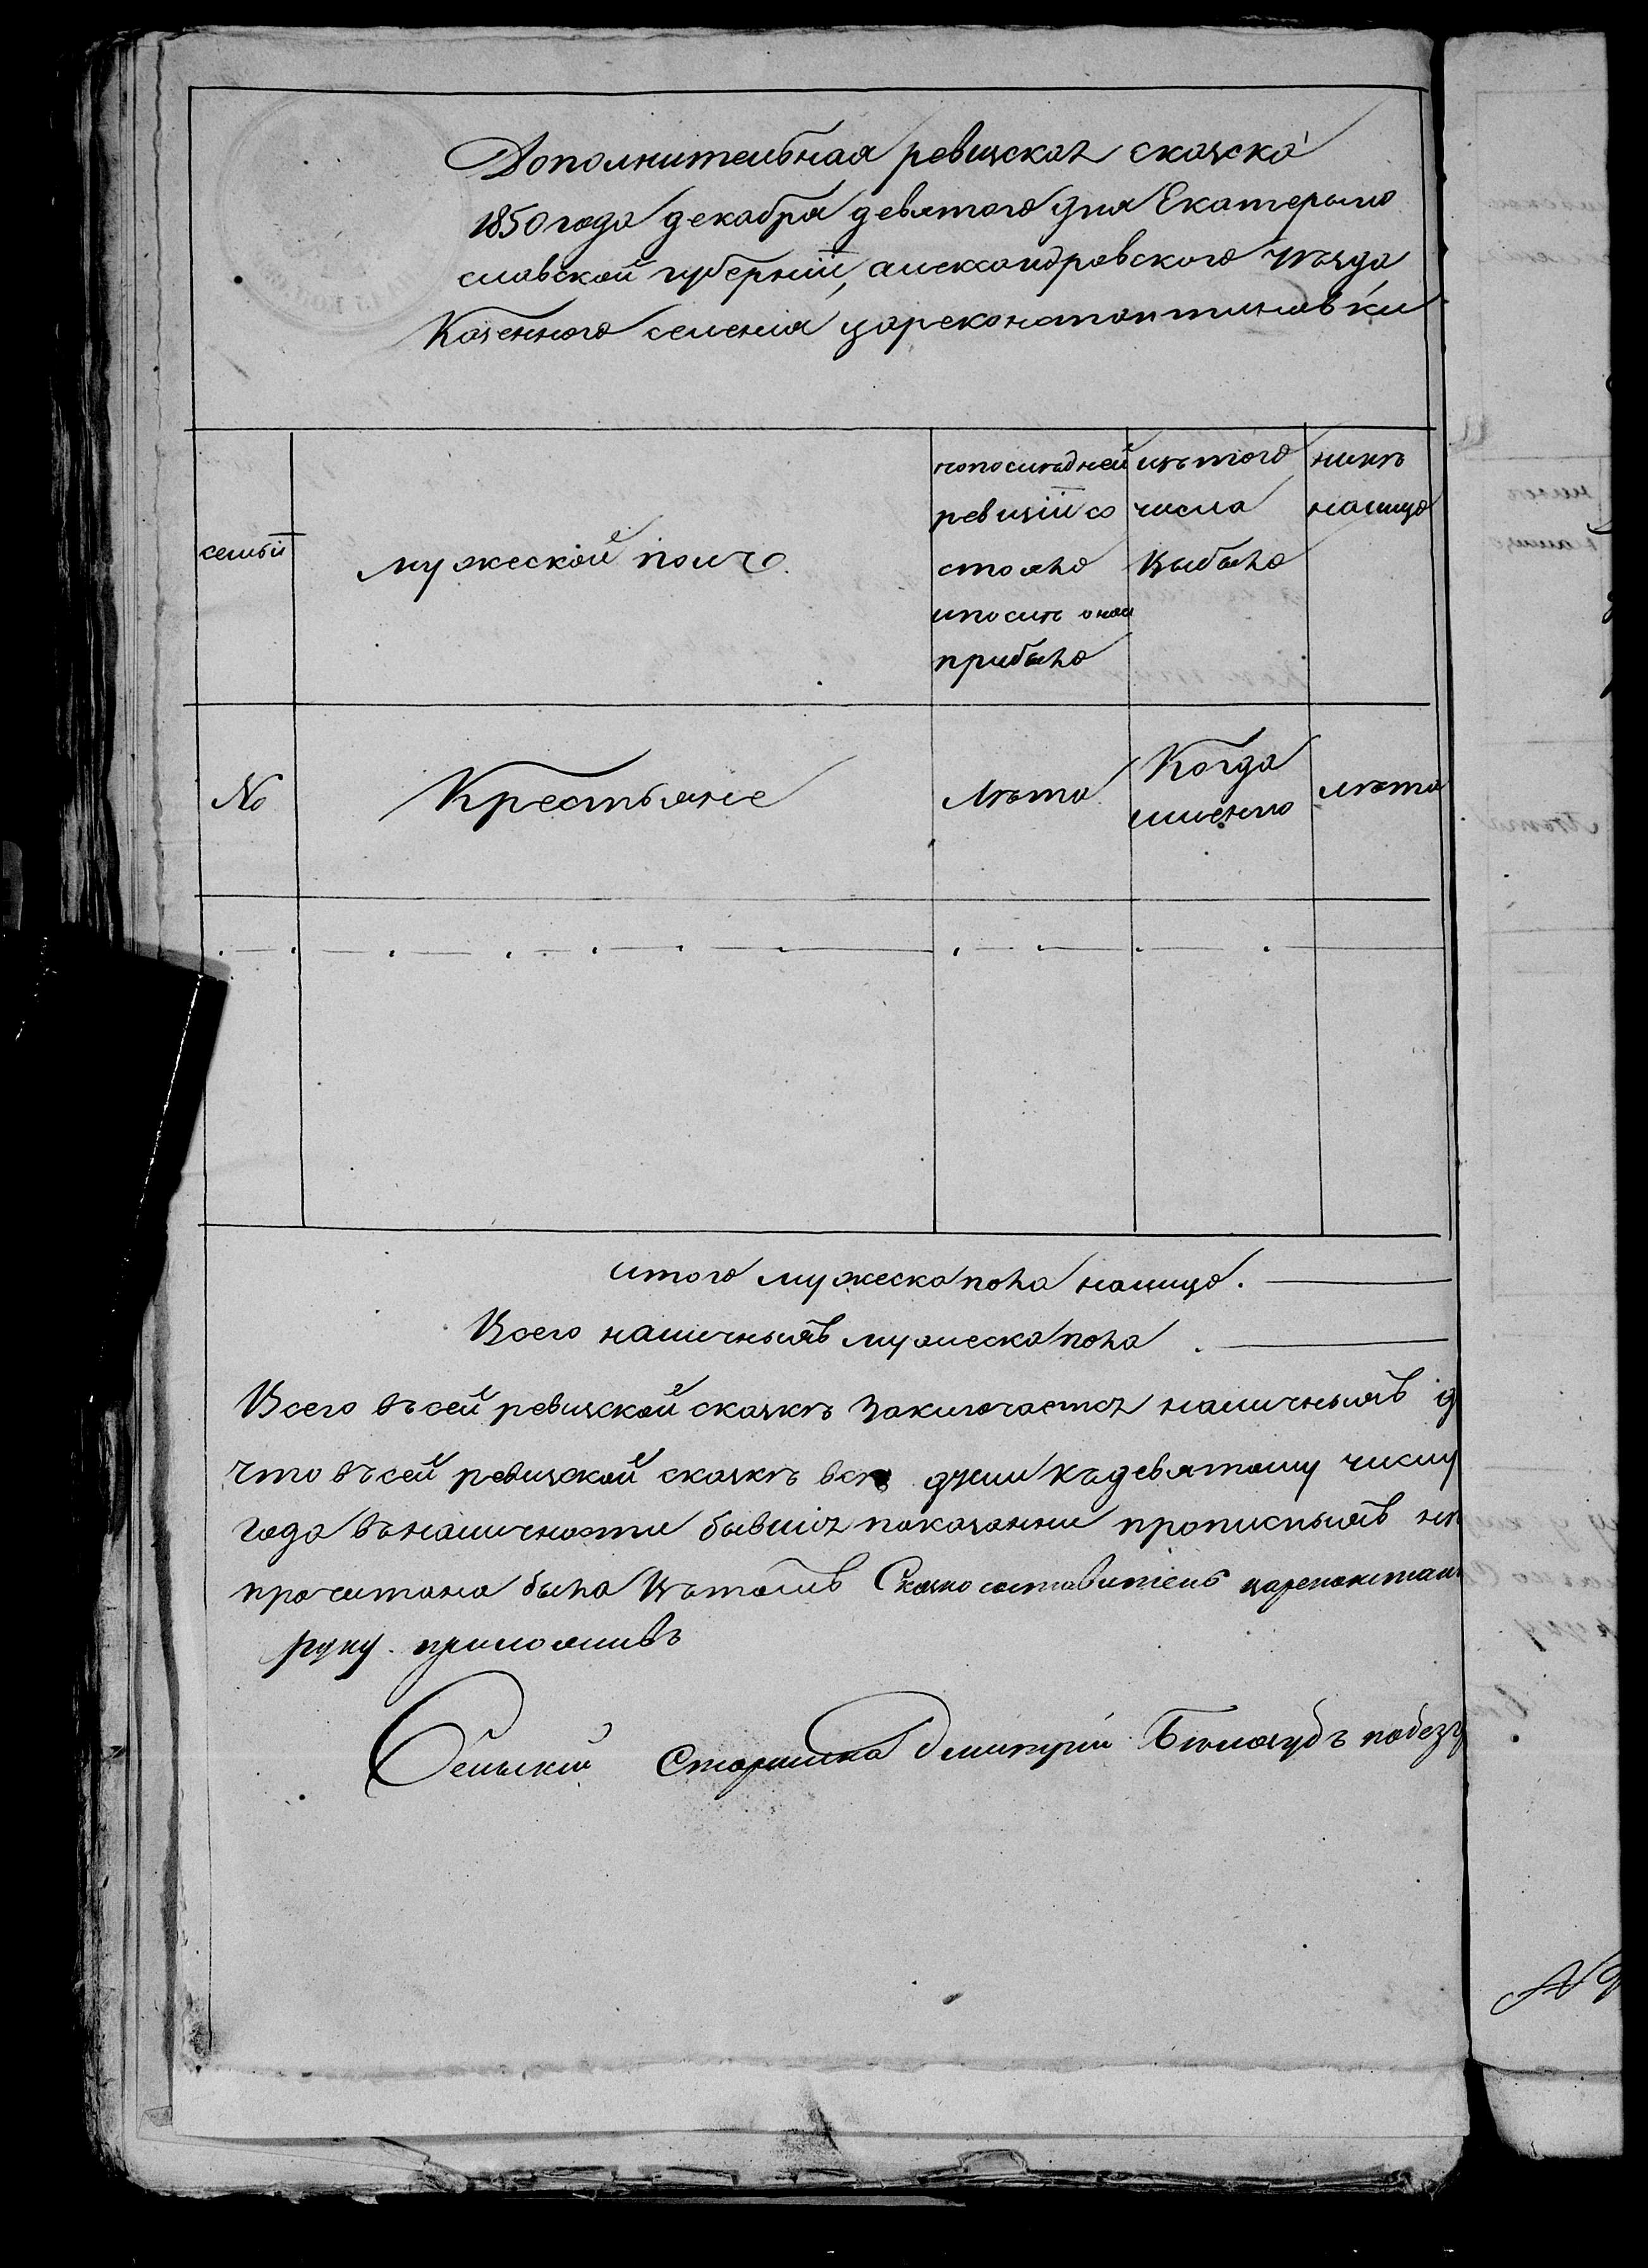 Дополнительная ревизская сказка
1850 года декабря девятого дня Екатерыно
славской губерніи, александровского уѣзда
Казенного селенія цареконстантиновки
семьи
мужеской полъ
попослѣдней
ревизіи со
стояло
ипослѣ оной
прибыло
изътого
числа
выбыло
нынѣ
налицо
№
Крестьяне
лѣта
Когда
именно
лѣта
итого мужеска пола налицо.
Всего наличныхъ мужеска пола
Всего въсей ревизской сказкѣ заключается наличныхъ
Что въсей ревизской сказкѣ всѣ души къдевятому числу
года въналичности бывшія показанни прописныхъ
прочитана была вътомъ Сказкосоставитель
руку приложивъ
Сельскій Старшина Дмитрій Бѣлозубъ
№